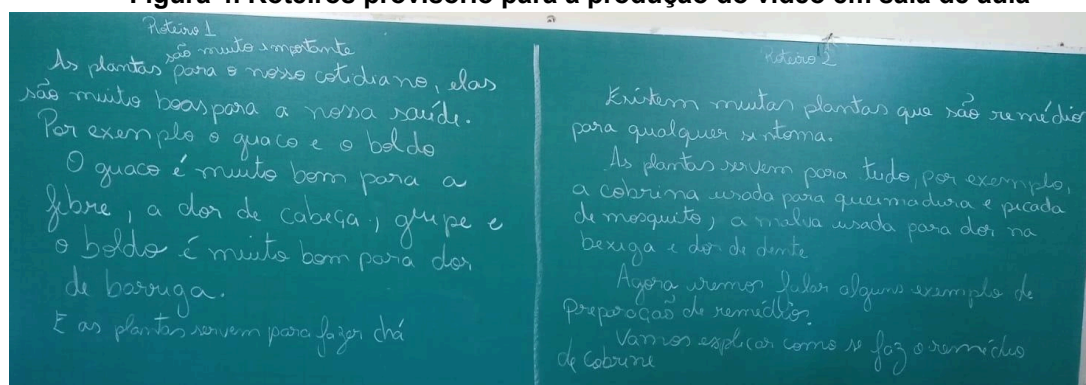 Figura 4: Roteiros provisório para a produção do vídeo em sala de aula
Roteiro 1
são muito importante
As plantas para o nosso cotidiano, elas
são muito boas para a nossa saúde.
Por exemplo o guaco e o boldo
O guaco é muito bom para a
febre, a dor de cabeça, gripe e
o boldo é muito bom para dor
de barriga.
E as plantas servem para fazer chá
Roteiro 2
Existem muitas plantas que são remédio
para qualquer sintoma.
As plantas servem para tudo, por exemplo,
a cobrina usada para queimadura e picada
de mosquito, a malva usada para dor na
bexiga e dor de dente
Agora iremos falar alguns exemplo de
preparação de remédios.
Vamos explicar como se faz o remédio
de cobrine